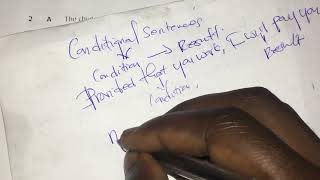 2 A The
Conditional Sentences
Condition → Result.
Provided that you work, I will pay you
Condition Result